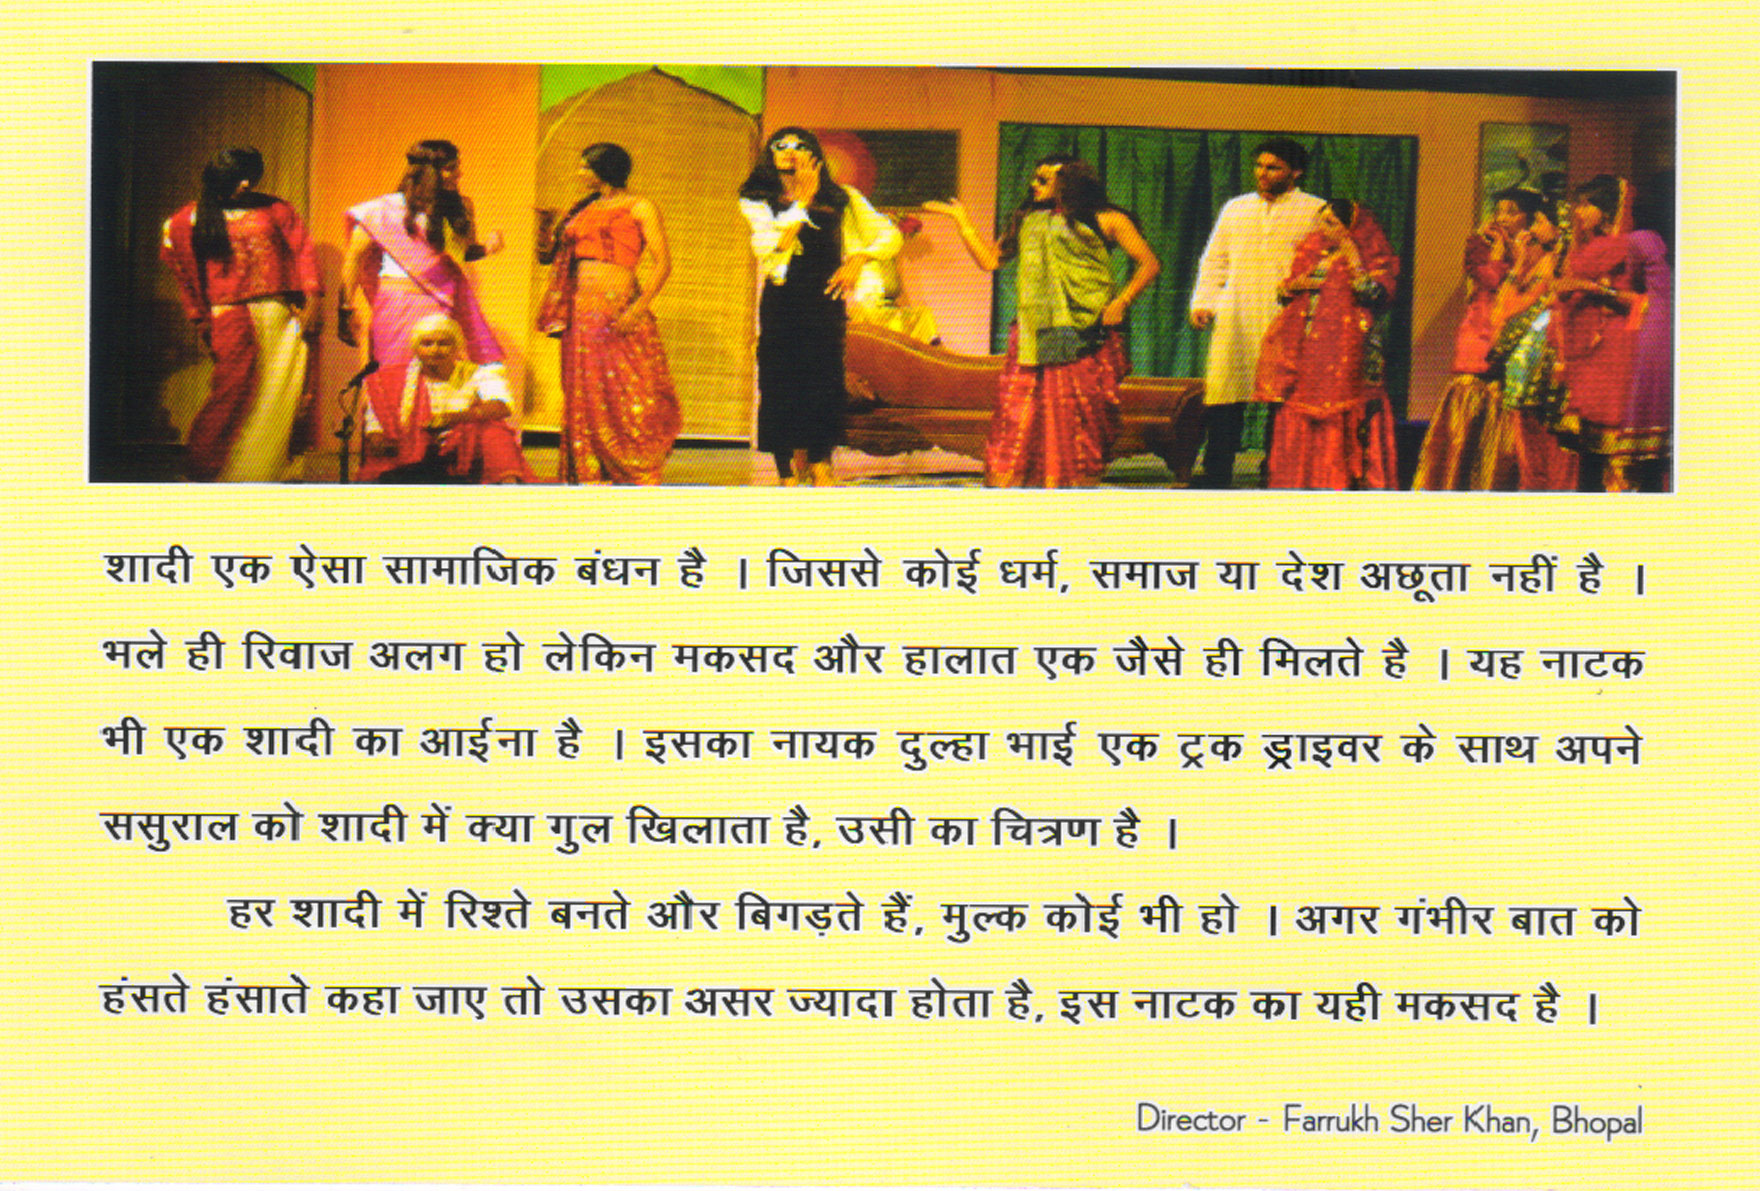 शादी एक ऐसा सामाजिक बंधन है । जिससे कोई धर्म, समाज या देश अछूता नहीं है ।
भले ही रिवाज अलग हो लेकिन मकसद और हालात एक जैसे ही मिलते है । यह नाटक
भी एक शादी का आईना है । इसका नायक दुल्हा भाई एक ट्रक ड्राइवर के साथ अपने
ससुराल को शादी में क्या गुल खिलाता है, उसी का चित्रण है ।
हर शादी में रिश्ते बनते और बिगड़ते हैं, मुल्क कोई भी हो । अगर गंभीर बात को
हंसते हंसाते कहा जाए तो उसका असर ज्यादा होता है, इस नाटक का यही मकसद है ।
Director - Farrukh Sher Khan, Bhopal